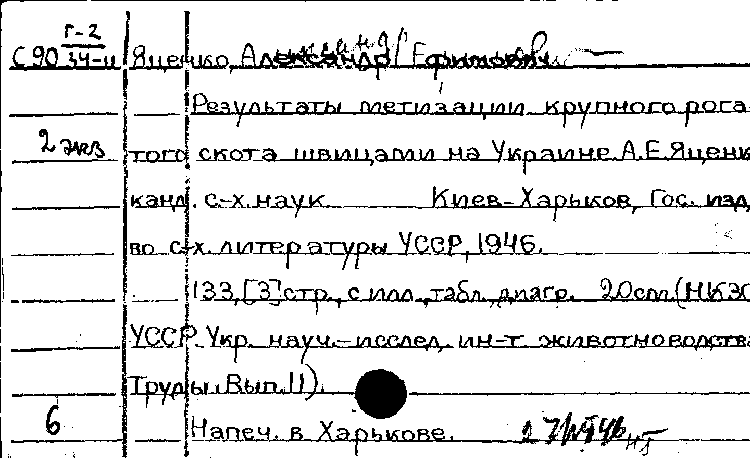 Г-2
С 90 34-и Яценко, Александр Ефимович.
Результаты метизации крупного рога-
2 экз того скота швицами на Украине. А.Е. Яценк
канд. с-х. наук Киев-Харьков, Гос. изд
во с-х. литературы УССР, 1946.
133,[3] стр., с илл., табл., диагр. 20 см (НКЗС
УССР. Укр. науч.-исслед. ин-т животноводства
Труды. Вып. 11).
6 Напеч. в Харькове.